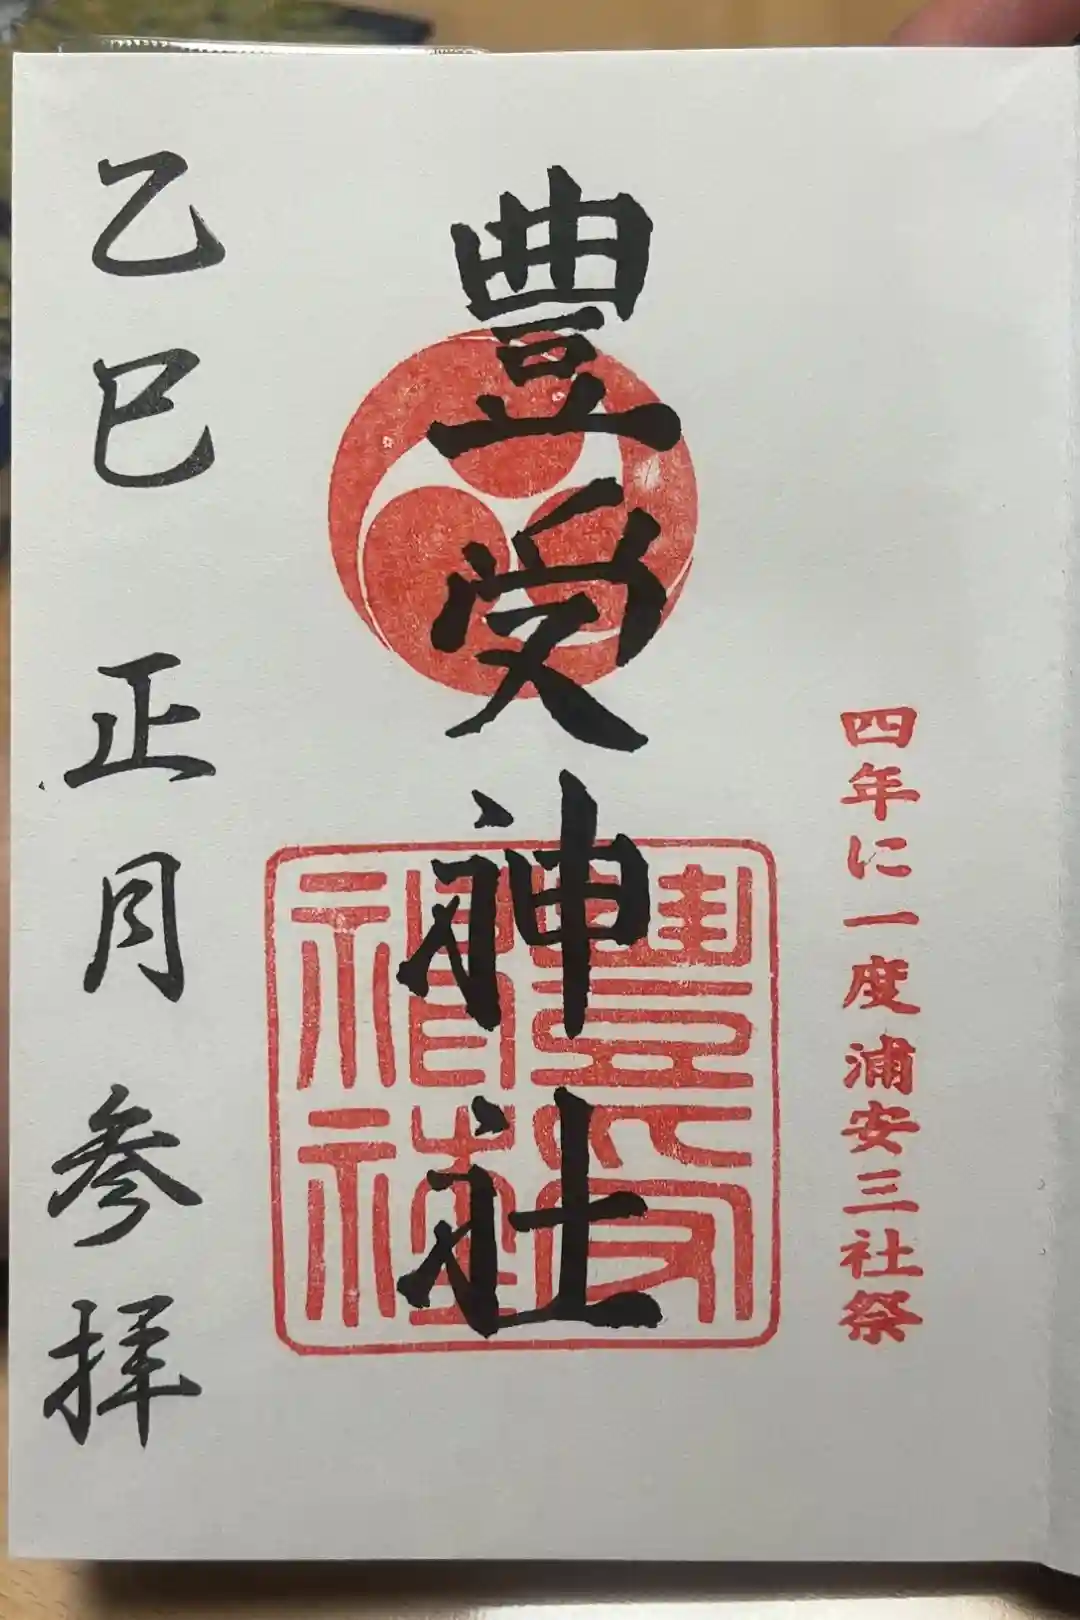 四年に一度浦安三社祭
豊受神社
豊受神社
乙巳 正月 参拝